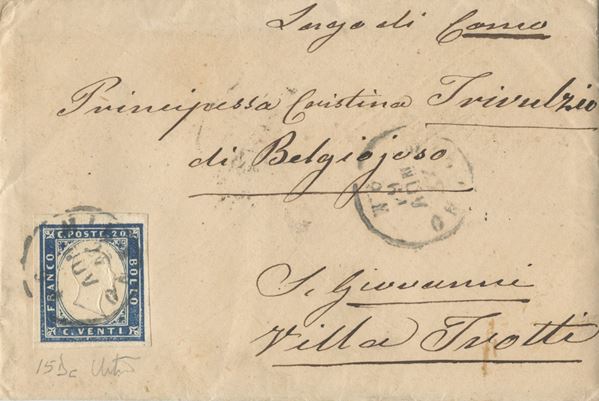 Lago di Como
Principessa Cristina Trivulzio
di Belgiojoso
S. Giovanni
Villa Trotti
C. POSTE. 20
FRANCO
BOLLO
C. VENTI
15Dc